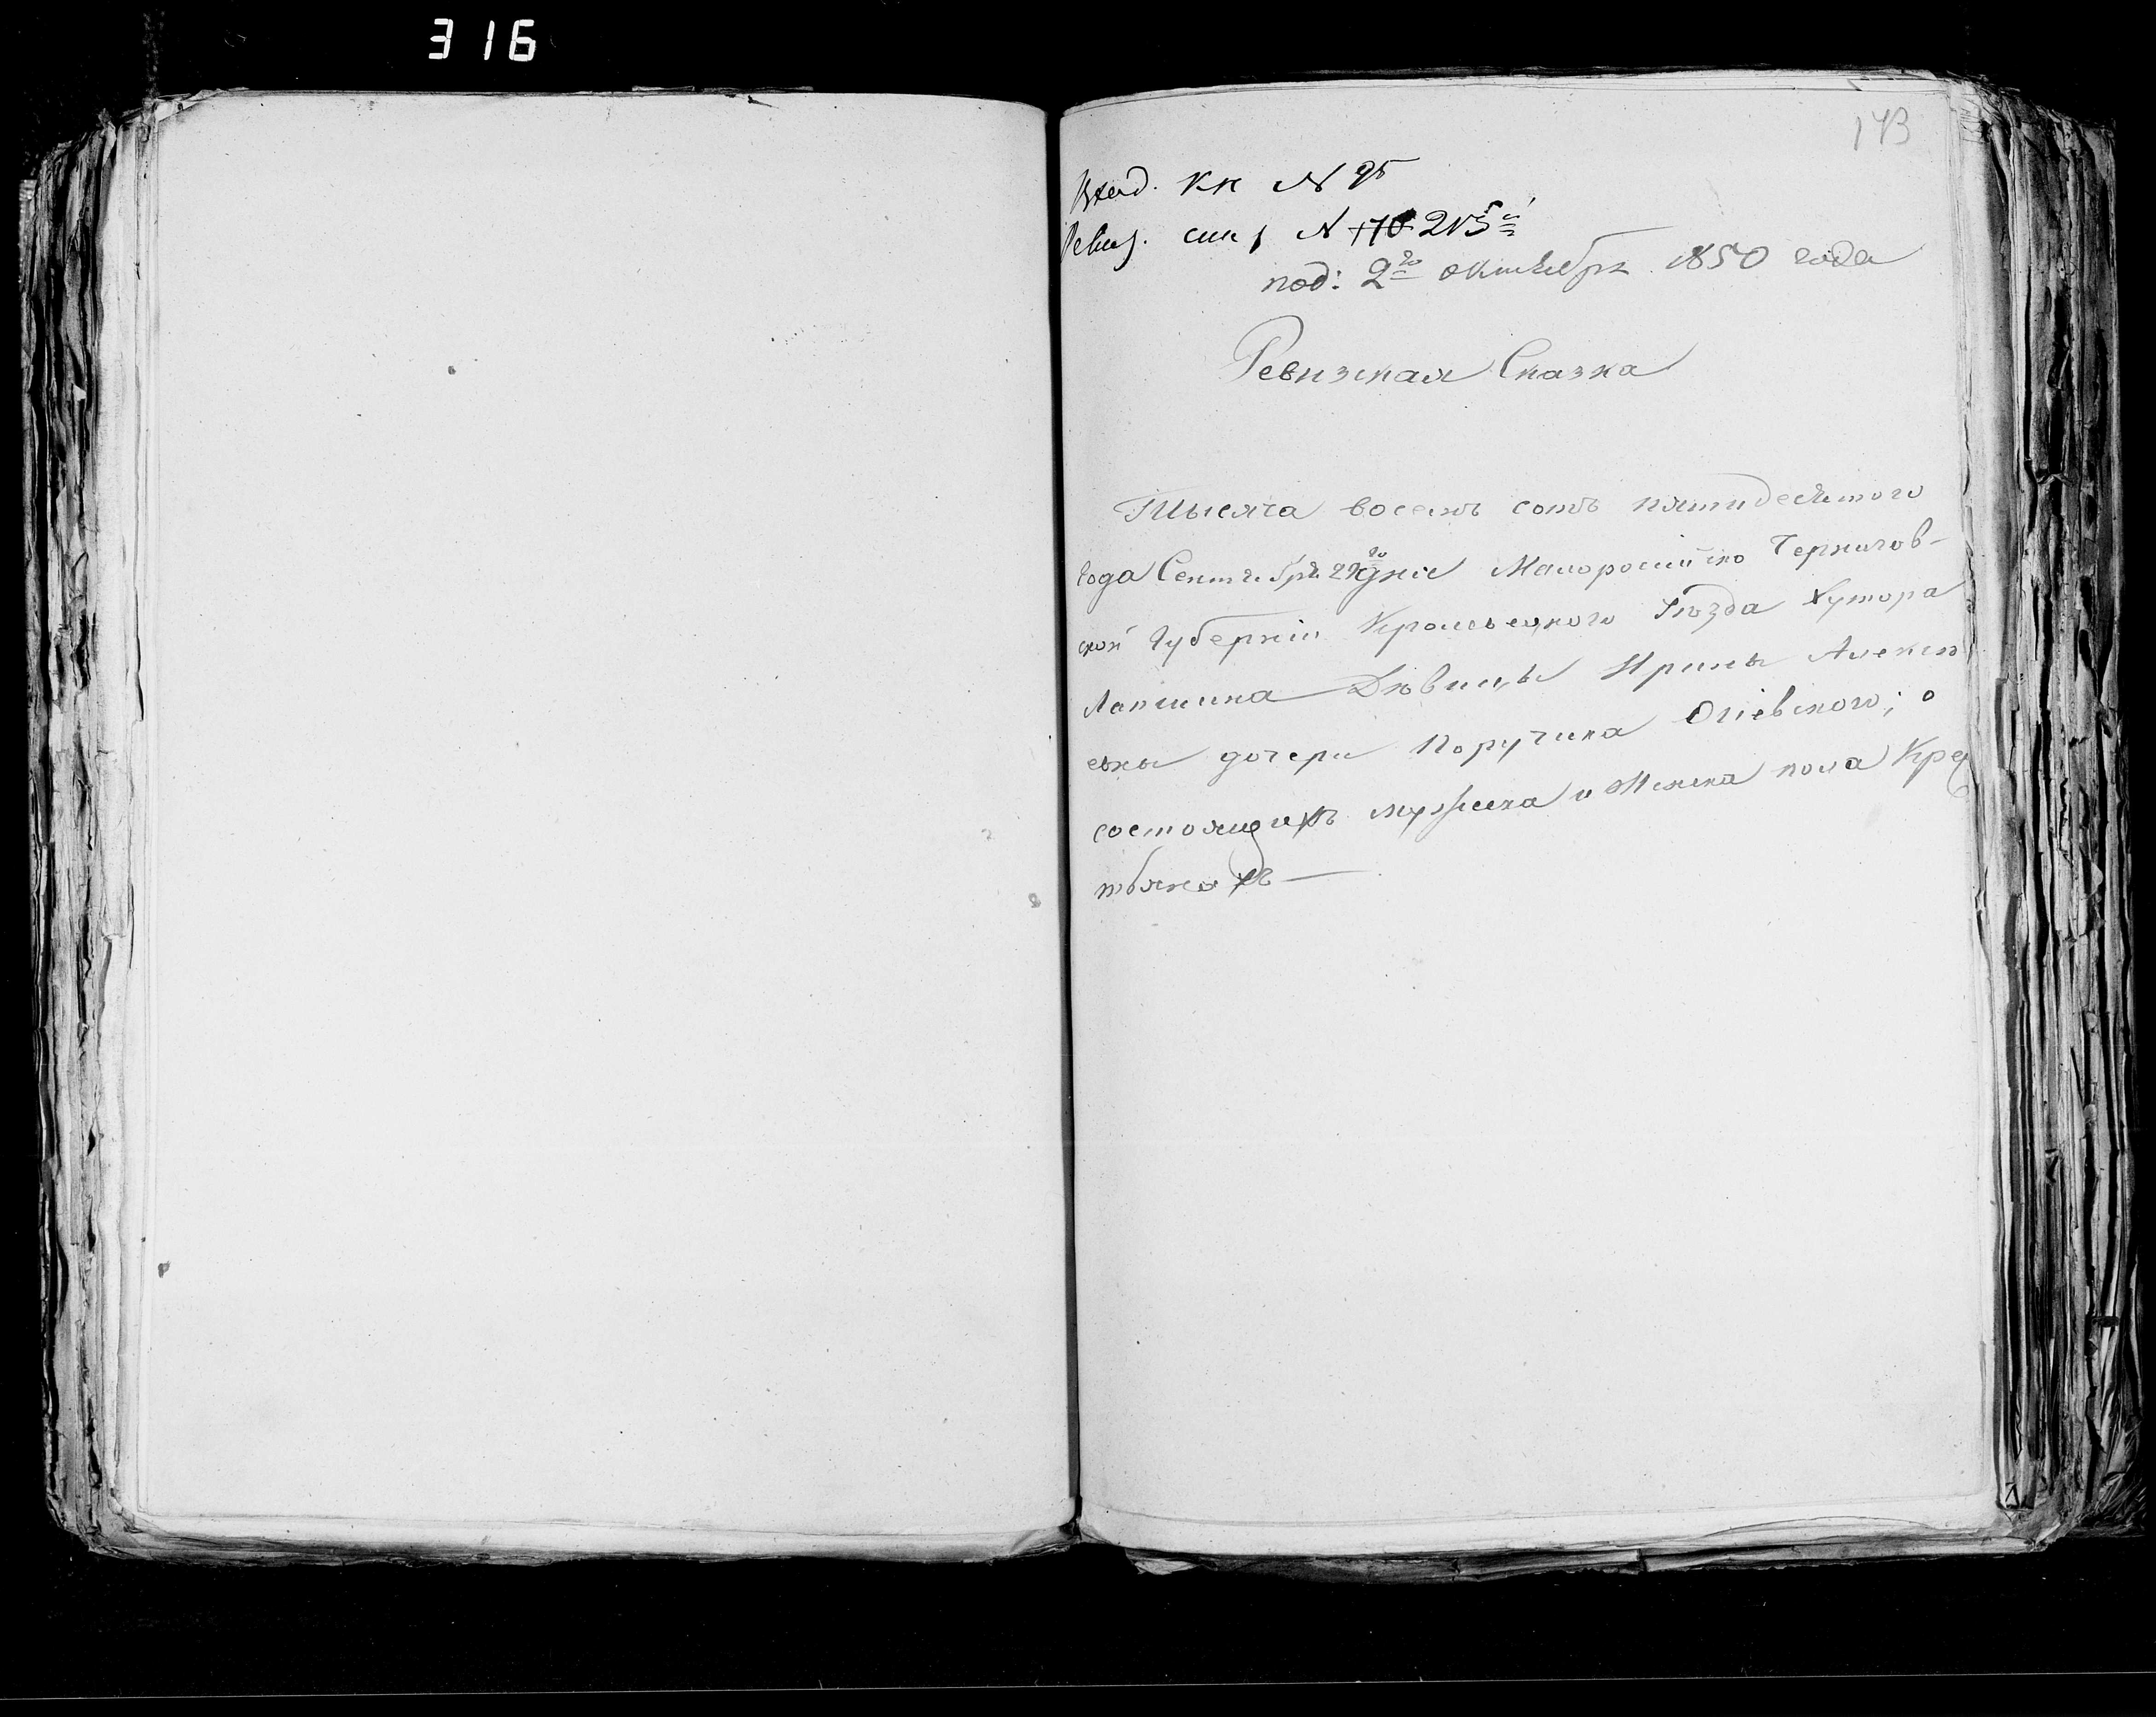 316
143
Вход. кн № 95
Ревиз. скаz № 170 215й
под: 2го октября 1850 года
Ревизская Сказка
Тысяча восемь сотъ пятидесятого
года Сентября 29го дня Малоросийско Чернигов-
ской Губерніи Кролевецкого Уѣзда Хутора
Лапшина Дѣвицы Ирины Алексѣ
евны дочери Поручика Огіевского; о
состоящихъ мужеска и Женска пола Крес
тьянахъ